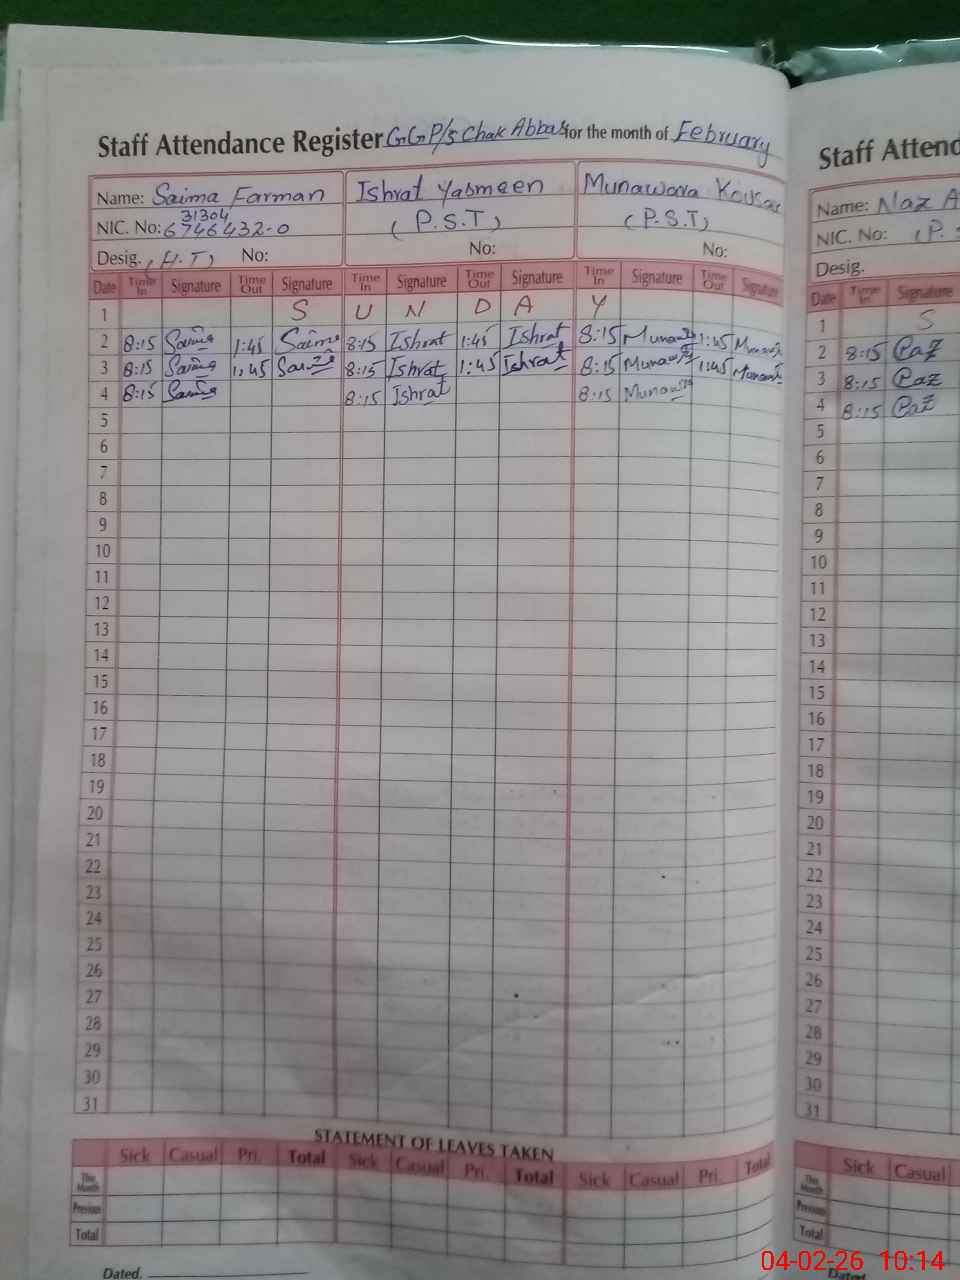 Staff Attendance Register GGP/S Chak Abbas for the month of February
Name: Saima Farman Ishrat Yasmeen Munawara Kousar
31304
NIC. No: 6746432-0 (P.S.T) (P.S.T)
Desig. (H.T) No: No: No:
Date Time In Signature Time Out Signature Time In Signature Time Out Signature Time In Signature Time Out Signature
1 S U N D A Y
2 8:15 Saima 1:45 Saima 8:15 Ishrat 1:45 Ishrat 8:15 Munawra 1:45
3 8:15 Saima 1:45 Saima 8:15 Ishrat 1:45 Ishrat 8:15 Munawra 1:45
4 8:15 Saima 8:15 Ishrat 8:15 Munawra
5
6
7
8
9
10
11
12
13
14
15
16
17
18
19
20
21
22
23
24
25
26
27
28
29
30
31
STATEMENT OF LEAVES TAKEN
Sick Casual Pri. Total Sick Casual Pri. Total Sick Casual Pri. Total
This Month
Previous
Total
Dated.
Staff Attend
Name: Naz A
NIC. No: (P.S
Desig.
Date Time In Signature
1 S
2 8:15
3 8:15
4 8:15
5
6
7
8
9
10
11
12
13
14
15
16
17
18
19
20
21
22
23
24
25
26
27
28
29
30
31
Sick Casual
This Month
Previous
Total
Dated.
04-02-26 10:14